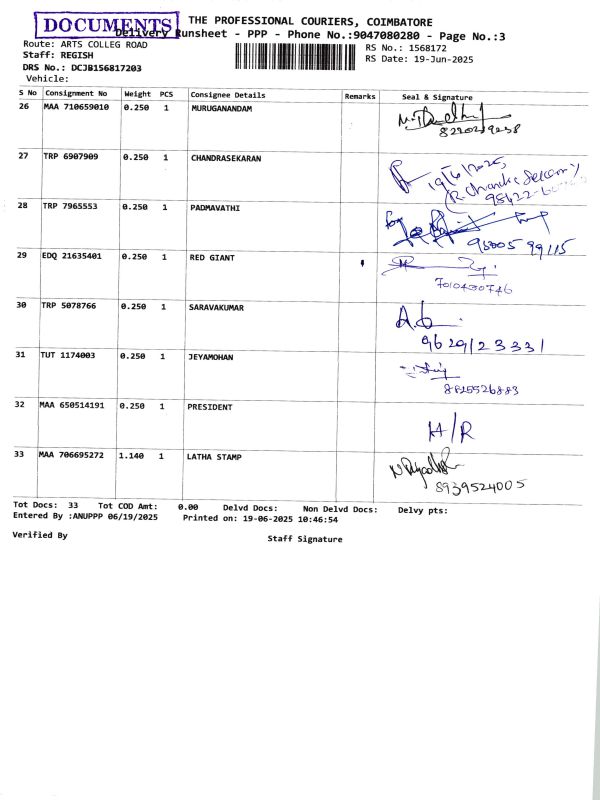 DOCUMENTS
THE PROFESSIONAL COURIERS, COIMBATORE
Delivery Runsheet - PPP - Phone No.:9047080280 - Page No.:3
Route: ARTS COLLEG ROAD
RS No.: 1568172
Staff: REGISH
RS Date: 19-Jun-2025
DRS No.: DCJB156817203
Vehicle:
S No Consignment No Weight PCS Consignee Details Remarks Seal & Signature
26 MAA 710659010 0.250 1 MURUGANANDAM
8220219238
27 TRP 6907909 0.250 1 CHANDRASEKARAN
19/6/2025
28 TRP 7965553 0.250 1 PADMAVATHI
98005 99115
29 EDQ 21635401 0.250 1 RED GIANT
7010430746
30 TRP 5078766 0.250 1 SARAVAKUMAR
9629123331
31 TUT 1174003 0.250 1 JEYAMOHAN
8825526883
32 MAA 650514191 0.250 1 PRESIDENT
H/R
33 MAA 706695272 1.140 1 LATHA STAMP
8939524005
Tot Docs: 33 Tot COD Amt: 0.00 Delvd Docs: Non Delvd Docs: Delvy pts:
Entered By :ANUPPP 06/19/2025 Printed on: 19-06-2025 10:46:54
Verified By
Staff Signature